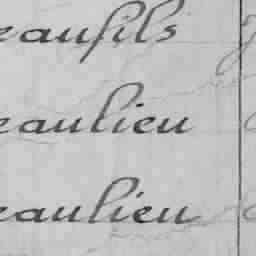 eaufils
eaulieu
eaulieu